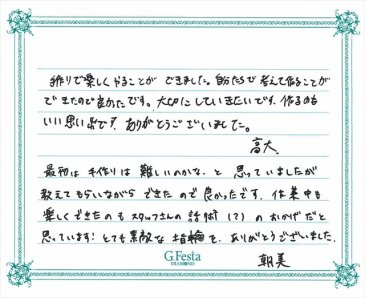 作りで楽しくやることができました。自分たちで考えて作ることが
できたので良かったです。大切にしていきたいです。作るのも
いい思い出です。ありがとうございました。
高大
最初は手作りは難しいのかな、と思っていましたが
教えてもらいながらできたので良かったです。作業中も
楽しくできたのもスタッフさんの話術(?)のおかげだと
思っています！とても素敵な指輪を、ありがとうございました。
朝美
G.Festa
DIAMOND